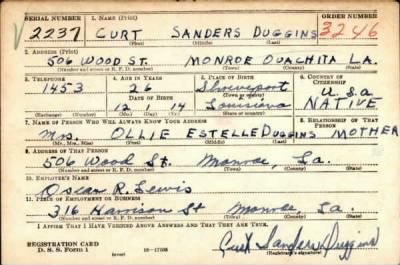 SERIAL NUMBER 1. NAME (Print) ORDER NUMBER
V 2237 CURT SANDERS DUGGINS 3246
(First) (Middle) (Last)
2. ADDRESS (Print)
506 WOOD ST. MONROE OUACHITA LA.
(Number and street or R. F. D. number) (Town) (County) (State)
3. TELEPHONE 4. AGE IN YEARS 5. PLACE OF BIRTH 6. COUNTRY OF CITIZENSHIP
1453 26 Shreveport U.S.A
DATE OF BIRTH (Town or county)
12 1 14 Louisiana NATIVE
(Mo.) (Day) (Yr.) (State or country)
7. NAME OF PERSON WHO WILL ALWAYS KNOW YOUR ADDRESS 8. RELATIONSHIP OF THAT PERSON
Mrs. OLLIE ESTELLE DUGGINS MOTHER
(Mr., Mrs., Miss) (First) (Middle) (Last)
9. ADDRESS OF THAT PERSON
506 Wood St. Monroe, La.
(Number and street or R. F. D. number) (Town) (County) (State)
10. EMPLOYER'S NAME
Oscar R. Lewis
11. PLACE OF EMPLOYMENT OR BUSINESS
316 Harrison St Monroe, La.
(Number and street or R. F. D. number) (Town) (County) (State)
I AFFIRM THAT I HAVE VERIFIED ABOVE ANSWERS AND THAT THEY ARE TRUE.
REGISTRATION CARD
D. S. S. Form 1 (over) 16—17105 Curt Sanders Duggins
(Registrant's signature)